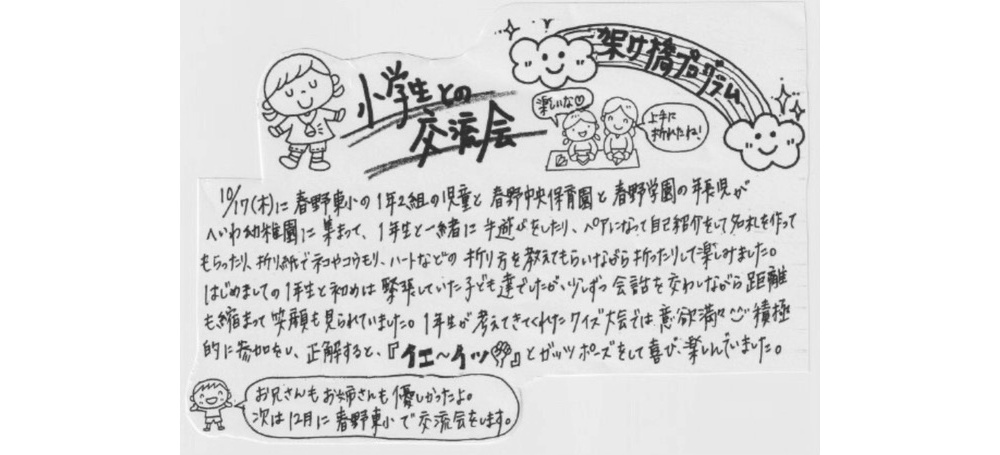 架け橋プログラム
小学生との
交流会
楽しいな
上手に
折れたね!
10/17(木)に春野東小の1年2組の児童と春野中央保育園と春野学園の年長児が
へいわ幼稚園に集まって、1年生と一緒に手遊びをしたり、ペアになって自己紹介をして名札を作って
もらったり、折り紙でネコやコウモリ、ハートなどの折り方を教えてもらいながら折ったりして楽しみました。
はじめましての1年生と初めは緊張していた子ども達でしたが、少しずつ会話を交わしながら距離
も縮まって笑顔も見られていました。1年生が考えてきてくれたクイズ大会では意欲満々積極
的に参加をし、正解すると、『イエ〜イッ』とガッツポーズをして喜び、楽しんでいました。
お兄さんもお姉さんも優しかったよ。
次は12月に春野東小で交流会をします。